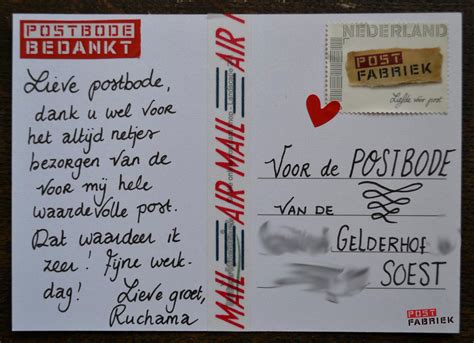 POSTBODE
BEDANKT
Lieve postbode,
dank u wel voor
het altijd netjes
bezorgen van de
voor mij hele
waardevolle post.
Dat waardeer ik
zeer! Fijne werk-
dag!
Lieve groet,
Ruchama
MAIL AIR MAIL AIR MAIL AIR
NEDERLAND
POST
FABRIEK
Liefde voor post
Voor de POSTBODE
VAN DE
GELDERHOF
SOEST
POST
FABRIEK